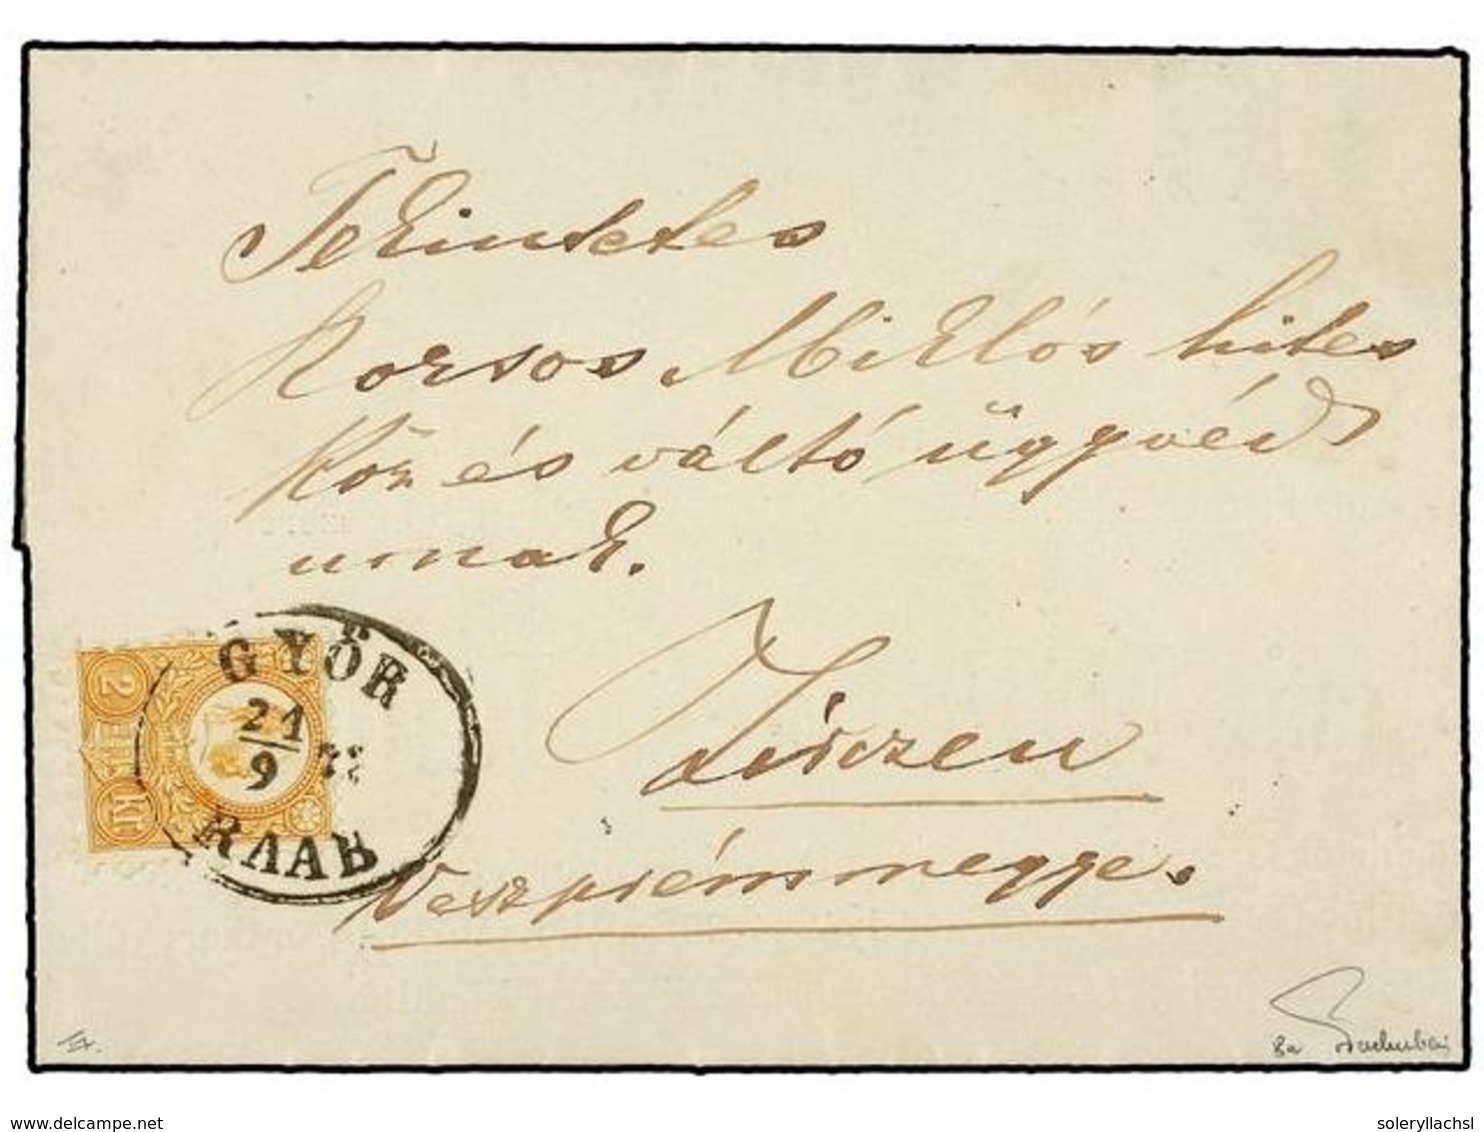 Tekintetes
Korsos Miklós hites
Köz és váltó ügyvéd
urnak.
GYŐR
21
9
RAAB
2
kr
Zirczen
Veszprémmegye.
8a
www.delcampe.net
soleryllachsl